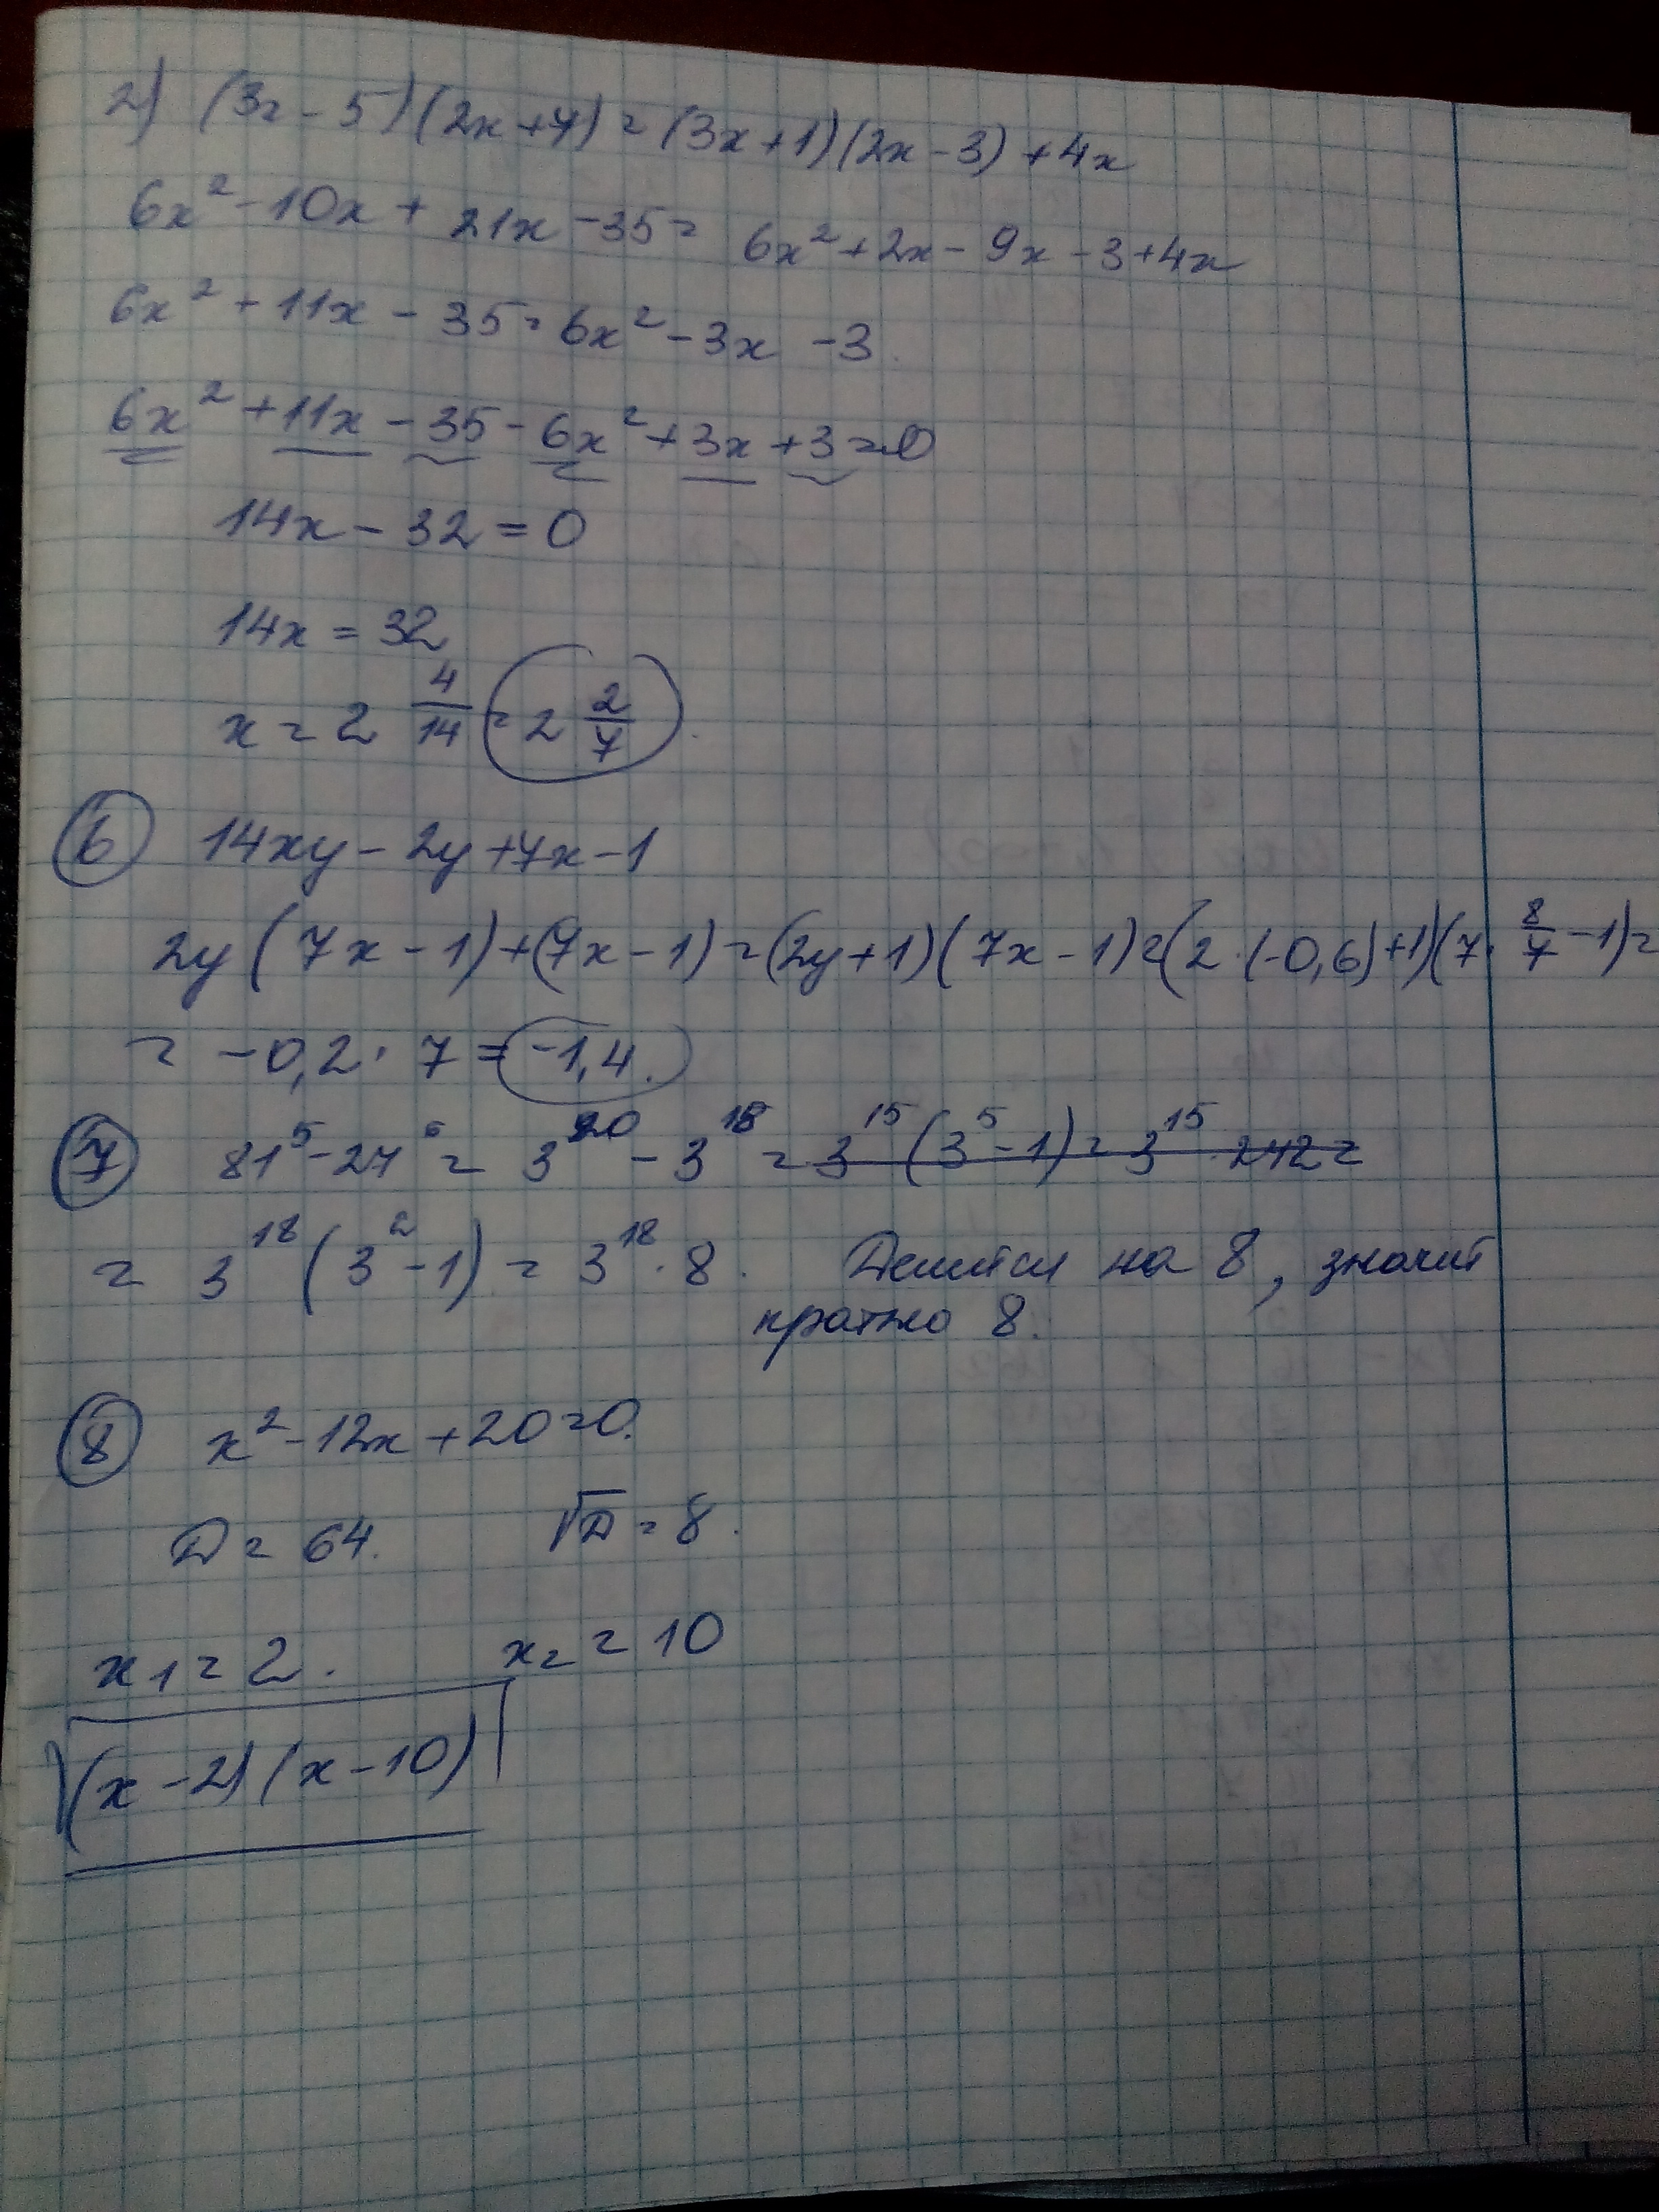 2) (3x - 5)(2x + 7) = (3x + 1)(2x - 3) + 4x
6x² - 10x + 21x - 35 = 6x² + 2x - 9x - 3 + 4x
6x² + 11x - 35 = 6x² - 3x - 3
6x² + 11x - 35 - 6x² + 3x + 3 = 0
14x - 32 = 0
14x = 32
x = 2 4/14 = 2 2/7
6 14xy - 2y + 7x - 1
2y(7x - 1) + (7x - 1) = (2y + 1)(7x - 1) = (2·(-0,6) + 1)(7· 8/7 - 1) =
= -0,2 · 7 = -1,4.
7 81⁵ - 27⁶ = 3²⁰ - 3¹⁸ = 3¹⁵(3⁵ - 1) = 3¹⁵ · 242 =
= 3¹⁸(3² - 1) = 3¹⁸ · 8. Делится на 8, значит
кратно 8.
8 x² - 12x + 20 = 0.
D = 64. √D = 8.
x₁ = 2. x₂ = 10
(x - 2)(x - 10)